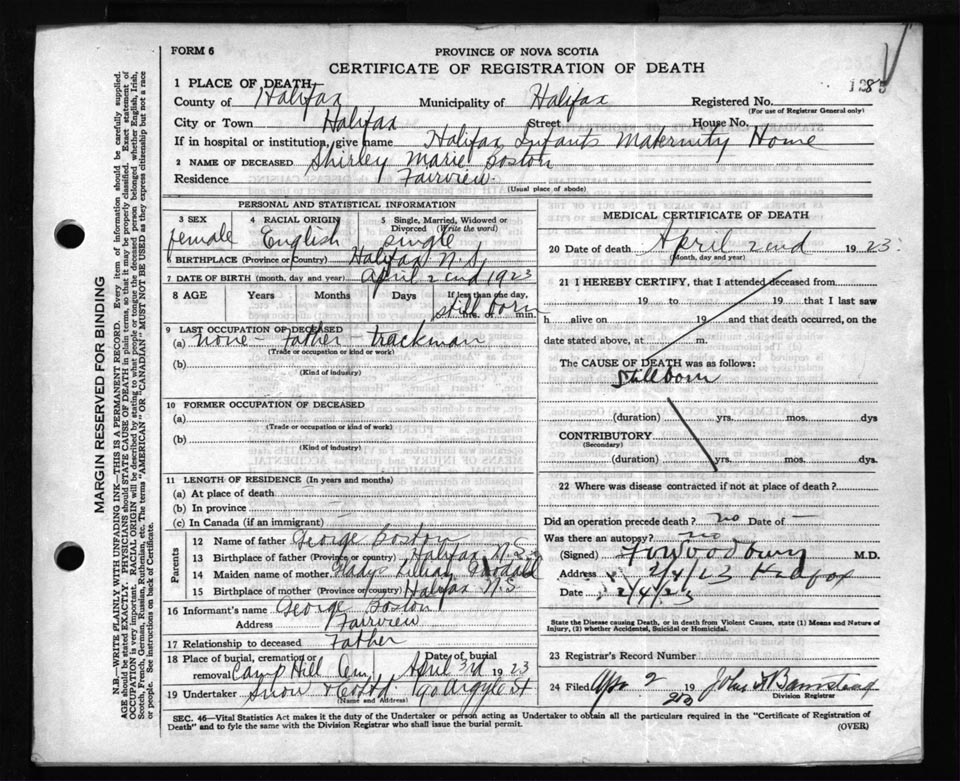 FORM 6
PROVINCE OF NOVA SCOTIA
CERTIFICATE OF REGISTRATION OF DEATH
1285
1 PLACE OF DEATH
County of Halifax Municipality of Halifax Registered No.
(For use of Registrar General only)
City or Town Halifax Street House No.
If in hospital or institution, give name Halifax Infants Maternity Home
2 NAME OF DECEASED Shirley Marie Boston
Residence Fairview
(Usual place of abode)
PERSONAL AND STATISTICAL INFORMATION
3 SEX 4 RACIAL ORIGIN 5 Single, Married, Widowed or Divorced (Write the word)
female English single
6 BIRTHPLACE (Province or Country) Halifax N.S.
7 DATE OF BIRTH (month, day and year) April 2nd 1923
8 AGE Years Months Days If less than one day, hrs. or min.
still born
9 LAST OCCUPATION OF DECEASED
(a) none - father - trackman
(Trade or occupation or kind or work)
(b)
(Kind of industry)
10 FORMER OCCUPATION OF DECEASED
(a)
(Trade or occupation or kind of work)
(b)
(Kind of industry)
11 LENGTH OF RESIDENCE (In years and months)
(a) At place of death
(b) In province
(c) In Canada (if an immigrant)
Parents
12 Name of father George Boston
13 Birthplace of father (Province or country) Halifax N.S.
14 Maiden name of mother Gladys Lillian Goodall
15 Birthplace of mother (Province or country) Halifax N.S
16 Informant's name George Boston
Address Fairview
17 Relationship to deceased Father
18 Place of burial, cremation or removal Camp Hill Cem Date of burial April 3rd 1923
19 Undertaker Snow & Co Ltd. 90 Argyle St
(Name and Address)
MEDICAL CERTIFICATE OF DEATH
20 Date of death April 2nd 1923
(Month, day and year)
21 I HEREBY CERTIFY, that I attended deceased from
19 to 19 that I last saw
h alive on 19 and that death occurred, on the
date stated above, at m.
The CAUSE OF DEATH was as follows:
Stillborn
(duration) yrs. mos. dys
CONTRIBUTORY
(Secondary)
(duration) yrs. mos. dys
22 Where was disease contracted if not at place of death?
Did an operation precede death? no Date of —
Was there an autopsy? no
(Signed) Woodbury M.D.
Address 2/4/23 Halifax
Date 2/4/23
State the Disease causing Death, or in death from Violent Causes, state (1) Means and Nature of
Injury, (2) whether Accidental, Suicidal or Homicidal.
23 Registrar's Record Number
24 Filed Apr 2 19 23 John A Barnstead
Division Registrar
SEC. 46—Vital Statistics Act makes it the duty of the Undertaker or person acting as Undertaker to obtain all the particulars required in the "Certificate of Registration of
Death" and to fyle the same with the Division Registrar who shall issue the burial permit.
(OVER)
MARGIN RESERVED FOR BINDING
N.B.—WRITE PLAINLY WITH UNFADING INK—THIS IS A PERMANENT RECORD. Every item of information should be carefully supplied.
AGE should be stated EXACTLY. PHYSICIANS should STATE CAUSE OF DEATH in plain terms, so that it may be properly classified. Exact statement of
OCCUPATION is very important. RACIAL ORIGIN will be described by stating to what people or tongue the deceased person belonged whether English, Irish,
Scotch, French, German, Russian, Ruthenian, etc. The terms "AMERICAN" OR "CANADIAN" MUST NOT BE USED as they express citizenship but not a race
or people. See instructions on back of Certificate.